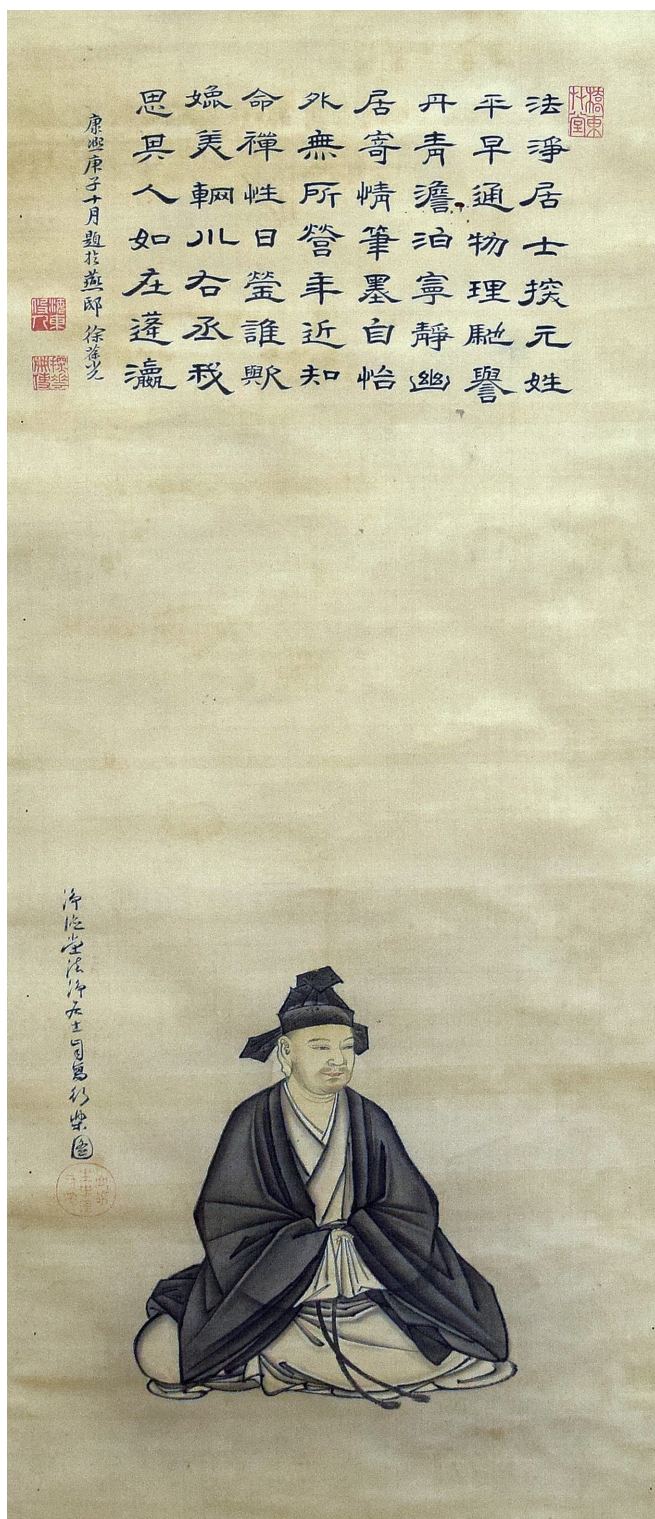 橋東艸堂
法淨居士掞元姓
平早通物理馳譽
丹青澹泊寧靜幽
居寄情筆墨自怡
外無所營年近知
命禪性日瑩誰歟
媲美輞川右丞我
思其人如在蓬瀛
康熙庚子十月題於燕邸 徐葆光
淨 堂法淨居士自寫行樂圖